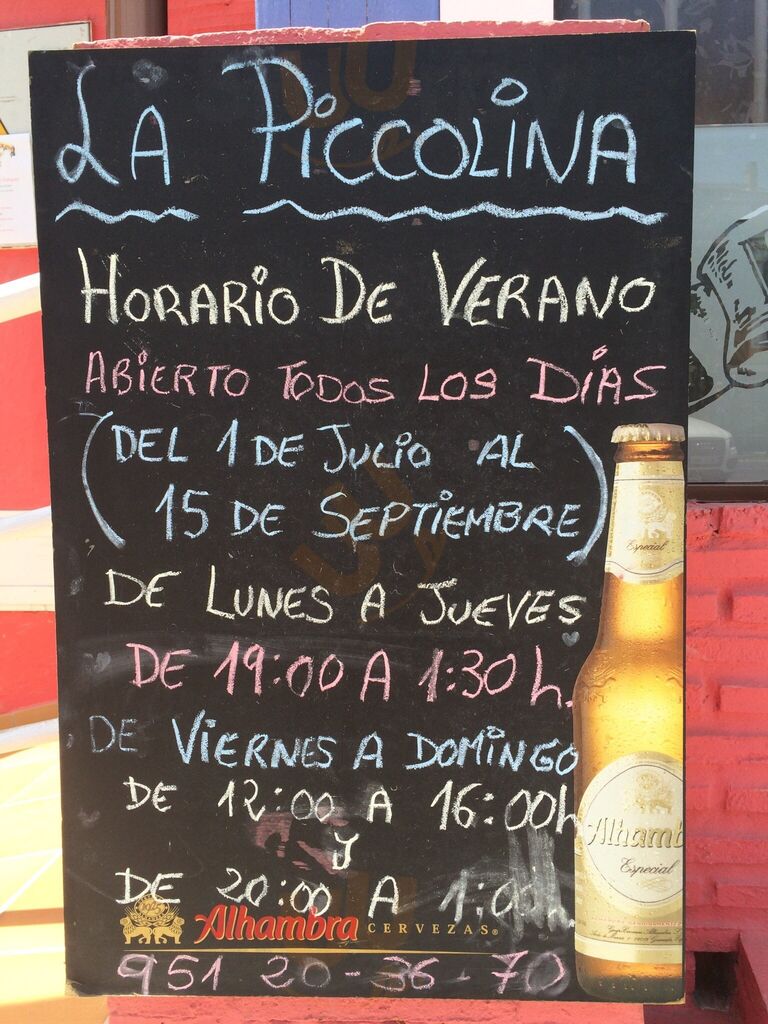 LA PiCCOLiNA
HORARiO DE VERANO
ABiERTO TODOS LOS DÍAS
(DEL 1 DE JULiO AL
15 DE SEPTiEMBRE)
DE LUNES A JUEVES
DE 19:00 A 1:30 h.
DE ViERNES A DOMiNGO
DE 12:00 A 16:00h
y
DE 20:00 A 1:00h
Alhambra CERVEZAS®
951 20-36-70
Especial
Alhamb
Especial